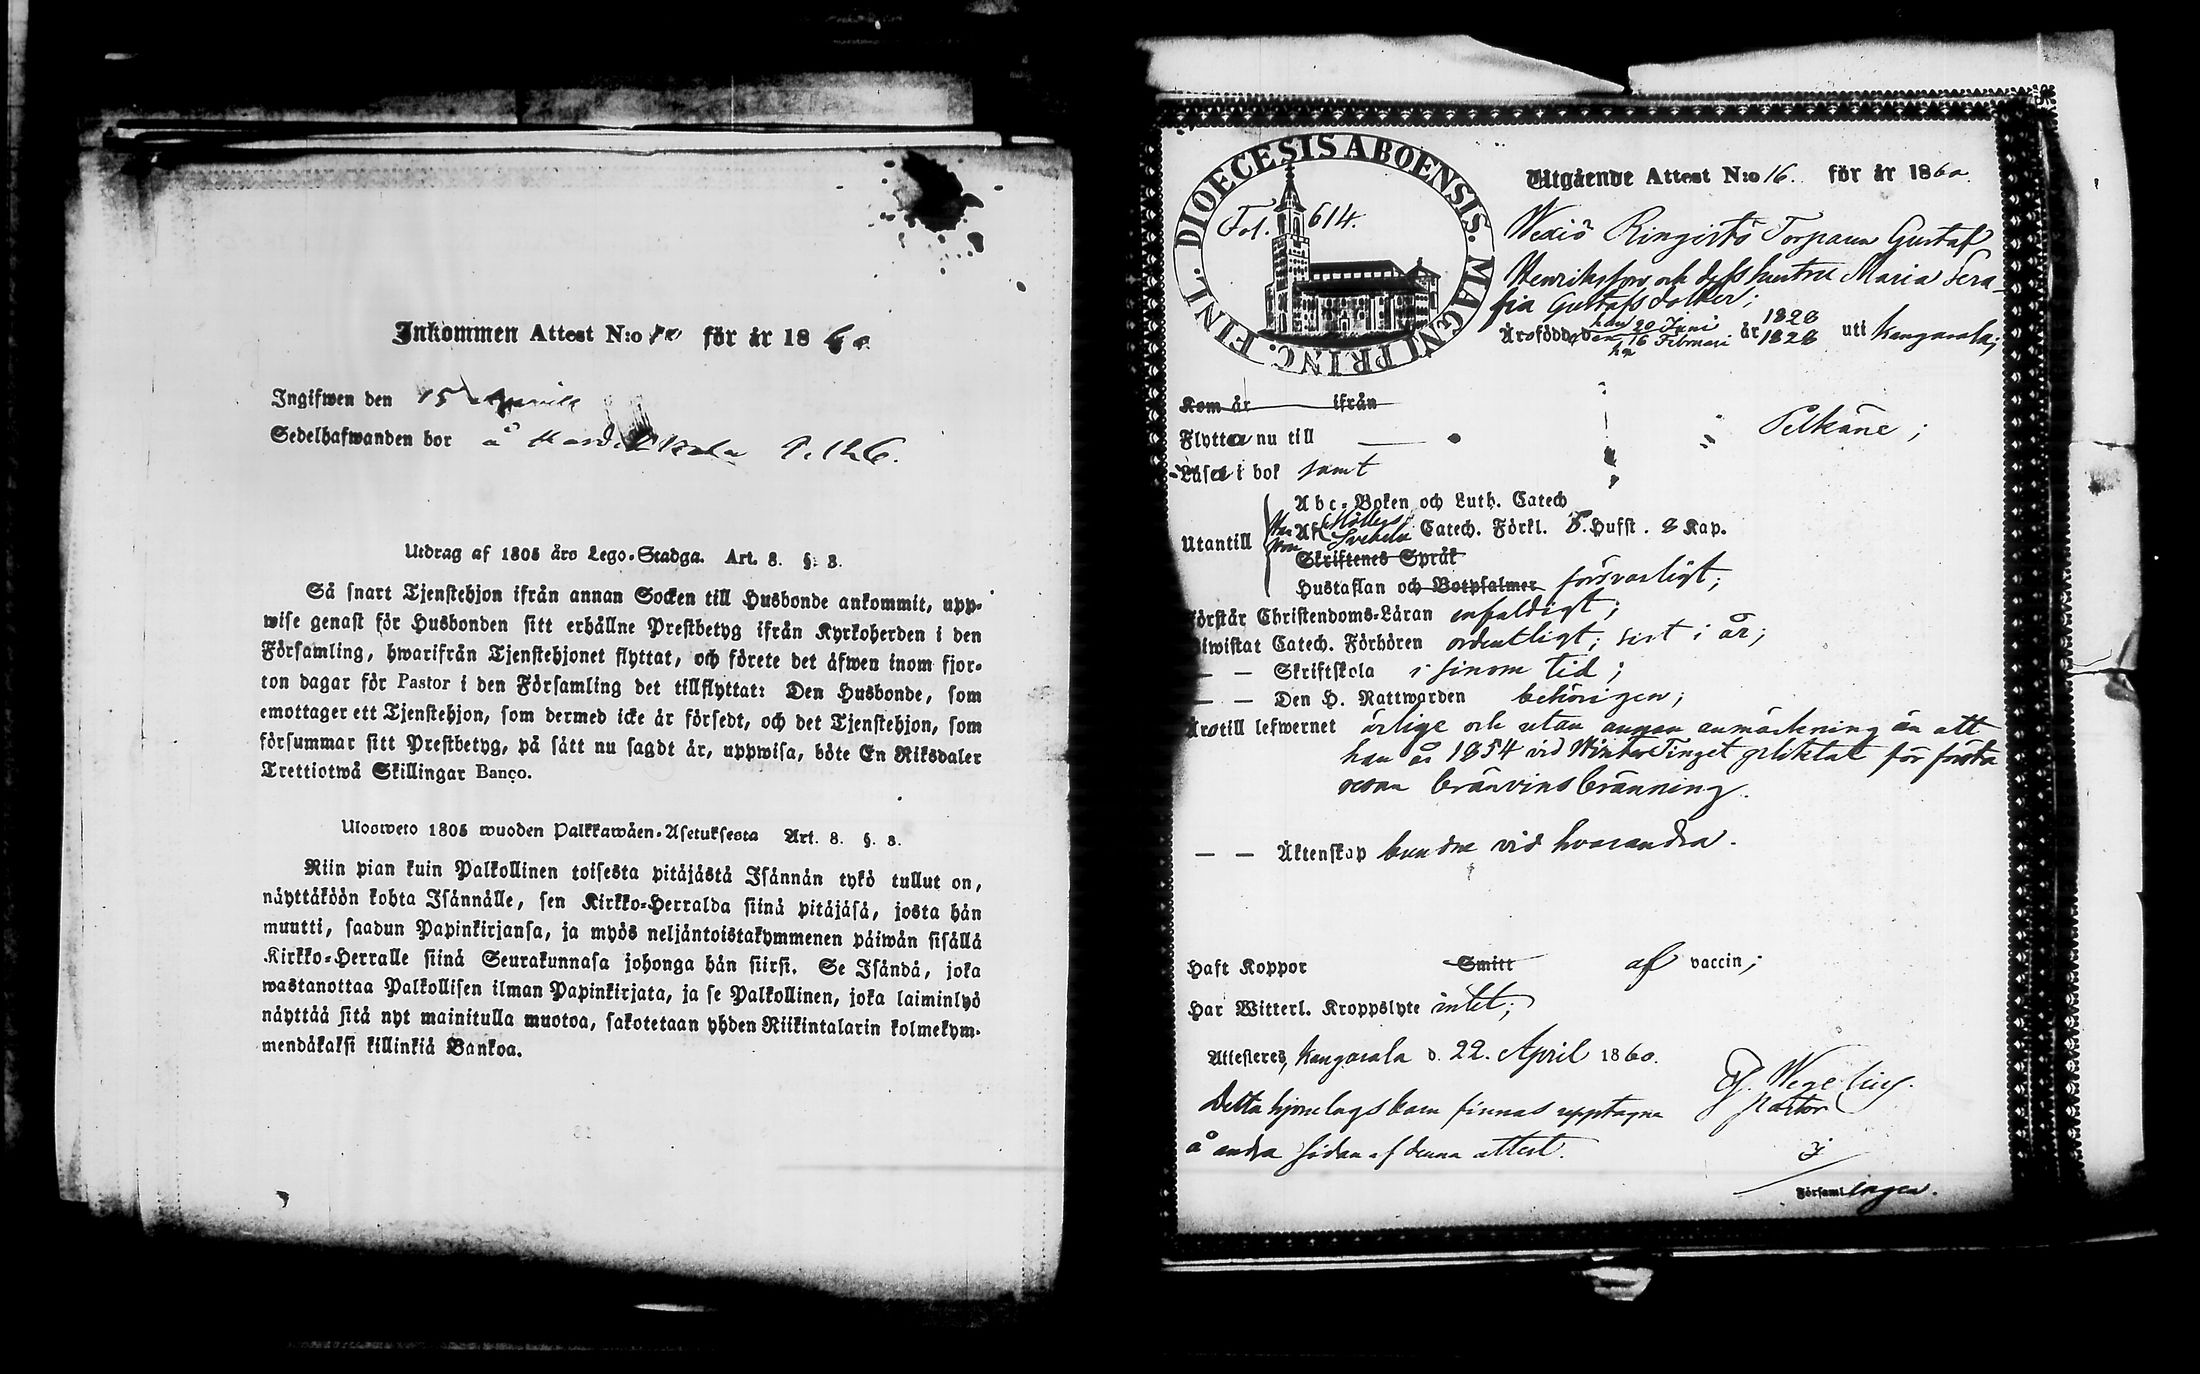 Inkommen Attest N:o 10 för år 1860
Ingifwen den 15 Aprill
Sedelhafwanden bor å P. 126.
Utdrag af 1805 års Lego-Stadga. Art. 8. §. 3.
Så snart Tjenstehjon ifrån annan Socken till Husbonde ankommit, upp-
wise genast för Husbonden sitt erhållne Prestbetyg ifrån Kyrkoherden i den
Församling, hwarifrån Tjenstehjonet flyttat, och förete det äfwen inom fjor-
ton dagar för Pastor i den Församling det tillflyttat: Den Husbonde, som
emottager ett Tjenstehjon, som dermed icke är försedt, och det Tjenstehjon, som
försummar sitt Prestbetyg, på sätt nu sagdt är, uppwisa, böte En Riksdaler
Trettiotwå Skillingar Banco.
Ulosweto 1805 wuoden Palkkawäen-Asetuksesta Art. 8. §. 3.
Niin pian kuin Palkollinen toisesta pitäjästä Isännän tykö tullut on,
näyttäköön kohta Isännälle, sen Kirkko-Herralda siinä pitäjäsä, josta hän
muutti, saadun Papinkirjansa, ja myös neljäntoistakymmenen päiwän sisällä
Kirkko-Herralle siinä Seurakunnasa johonga hän siirsi. Se Isändä, joka
wastanottaa Palkollisen ilman Papinkirjata, ja se Palkollinen, joka laiminlyö
näyttää sitä nyt mainitulla muotoa, sakotetaan yhden Riikintalarin kolmekym-
mendäkaksi killinkiä Bankoa.
FINL. DIOECESIS ABOENSIS. MAGNI PRINC.
Fol. 614.
Utgående Attest N:o 16. för år 1860.
Wediö Ringistö Torparn Gustaf
Henriksson och dess hustru Maria Sera-
fia Gustafsdotter;
Äro födde den han 20 Juni år 1826 uti Kangasala;
hn 16 Februari 1828
Kom år ifrån
Flytta nu till Pelkäne;
Läsa i bok samt
Utantill
Abc-Boken och Luth. Catech
Han Af Möllers
hon Svebelii Catech. Förkl. 5. Hufst. 8 Kap.
Skriftenes Språk
Hustaflan och Botpsalmer försvarligt;
Förstår Christendoms-Läran enfaldigt;
Biwistat Catech. Förhören ordentligt; sist i år;
— — Skriftskola i sinom tid;
— — Den H. Nattwarden behörigen;
Äro till lefwernet ärlige och utan annan anmärkning än att
han år 1854 vid WinterTinget pliktat för första
resan bränvinsbränning.
— — Äktenskap bundne vid hvarandra.
Haft Koppor Smitt af vaccin;
Har Witterl. Kroppslyte intet;
Attesteres, Kangasala d. 22. April 1860.
G. Wegelius.
Pastor
Detta hjonelags barn finnas upptagne
å andra sidan af denna attest.
i
Församlingen.